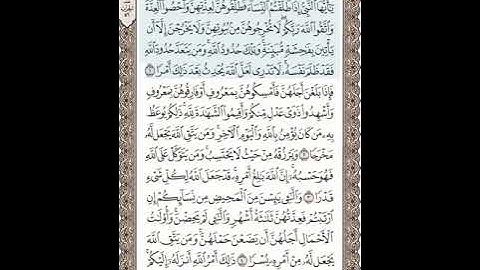 يَٰٓأَيُّهَا ٱلنَّبِىُّ إِذَا طَلَّقْتُمُ ٱلنِّسَآءَ فَطَلِّقُوهُنَّ لِعِدَّتِهِنَّ وَأَحْصُوا۟ ٱلْعِدَّةَ
وَٱتَّقُوا۟ ٱللَّهَ رَبَّكُمْ ۖ لَا تُخْرِجُوهُنَّ مِنۢ بُيُوتِهِنَّ وَلَا يَخْرُجْنَ إِلَّآ أَن
يَأْتِينَ بِفَٰحِشَةٍ مُّبَيِّنَةٍ ۚ وَتِلْكَ حُدُودُ ٱللَّهِ ۚ وَمَن يَتَعَدَّ حُدُودَ ٱللَّهِ
فَقَدْ ظَلَمَ نَفْسَهُۥ ۚ لَا تَدْرِى لَعَلَّ ٱللَّهَ يُحْدِثُ بَعْدَ ذَٰلِكَ أَمْرًا ١
فَإِذَا بَلَغْنَ أَجَلَهُنَّ فَأَمْسِكُوهُنَّ بِمَعْرُوفٍ أَوْ فَارِقُوهُنَّ بِمَعْرُوفٍ
وَأَشْهِدُوا۟ ذَوَىْ عَدْلٍ مِّنكُمْ وَأَقِيمُوا۟ ٱلشَّهَٰدَةَ لِلَّهِ ۚ ذَٰلِكُمْ يُوعَظُ
بِهِۦ مَن كَانَ يُؤْمِنُ بِٱللَّهِ وَٱلْيَوْمِ ٱلْءَاخِرِ ۚ وَمَن يَتَّقِ ٱللَّهَ يَجْعَل لَّهُۥ
مَخْرَجًا ٢ وَيَرْزُقْهُ مِنْ حَيْثُ لَا يَحْتَسِبُ ۚ وَمَن يَتَوَكَّلْ عَلَى ٱللَّهِ
فَهُوَ حَسْبُهُۥٓ ۚ إِنَّ ٱللَّهَ بَٰلِغُ أَمْرِهِۦ ۚ قَدْ جَعَلَ ٱللَّهُ لِكُلِّ شَىْءٍ
قَدْرًا ٣ وَٱلَّٰٓـِٔى يَئِسْنَ مِنَ ٱلْمَحِيضِ مِن نِّسَآئِكُمْ إِنِ
ٱرْتَبْتُمْ فَعِدَّتُهُنَّ ثَلَٰثَةُ أَشْهُرٍ وَٱلَّٰٓـِٔى لَمْ يَحِضْنَ ۚ وَأُو۟لَٰتُ
ٱلْأَحْمَالِ أَجَلُهُنَّ أَن يَضَعْنَ حَمْلَهُنَّ ۚ وَمَن يَتَّقِ ٱللَّهَ
يَجْعَل لَّهُۥ مِنْ أَمْرِهِۦ يُسْرًا ٤ ذَٰلِكَ أَمْرُ ٱللَّهِ أَنزَلَهُۥٓ إِلَيْكُمْ